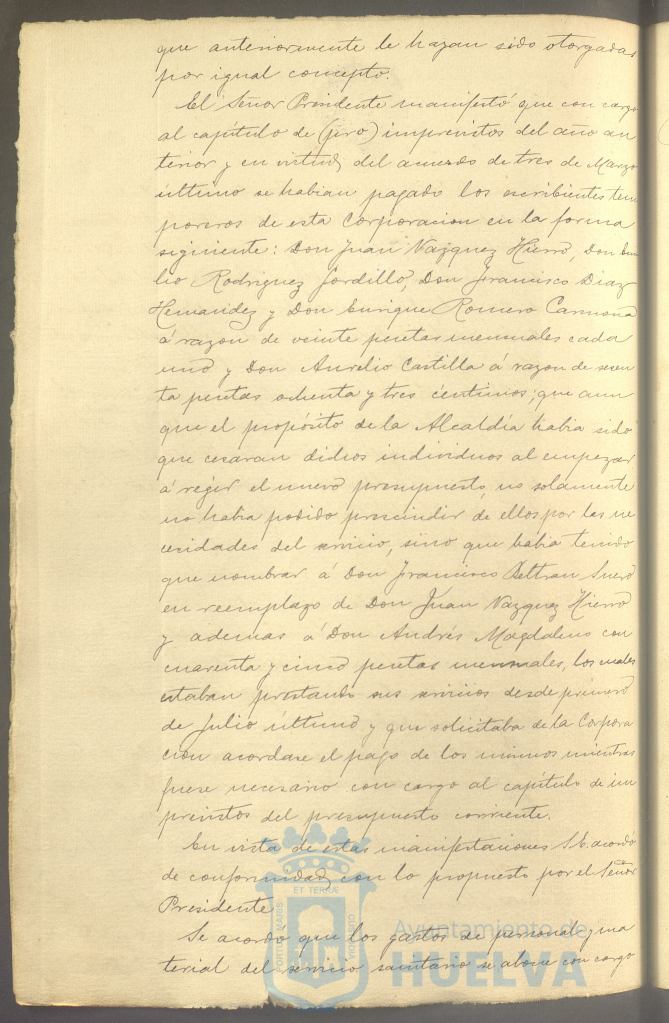 que anteriormente le hayan sido otorgadas
por igual concepto.
El Señor Presidente manifestó que con cargo
al capítulo de (pro) imprevistos del año an
terior y en virtud del acuerdo de tres de Marzo
último se habian pagado los escribientes tem
poreros de esta Corporacion en la forma
siguiente: Don Juan Vazquez Hierro, Don Emi
lio Rodriguez Gordillo, Don Francisco Diaz
Hernandez y Don Enrique Romero Carmona
á razon de veinte pesetas mensuales cada
uno y Don Aurelio Castilla á razon de sesen
ta pesetas ochenta y tres céntimos; que aun
que el propósito de la Alcaldía habia sido
que cesaran dichos individuos al empezar
á regir el nuevo presupuesto, no solamente
no habia podido prescindir de ellos por las ne
cesidades del servicio, sino que habia tenido
que nombrar á Don Francisco Beltran Suero
en reemplazo de Don Juan Vazquez Hierro
y ademas á Don Andrés Magdaleno con
cuarenta y cinco pesetas mensuales, los cuales
estaban prestando sus servicios desde primero
de Julio último y que solicitaba de la Corpora
cion acordase el pago de los mismos mientras
fuese necesario con cargo al capítulo de im
previstos del presupuesto corriente.
En vista de estas manifestaciones S.E. acordó
de conformidad con lo propuesto por el Señor
Presidente
Se acordo que los gastos de personal y ma
terial del servicio sanitario se abone con cargo
PORTUS MARIS ET TERRAE CUSTODIA
Ayuntamiento de
HUELVA